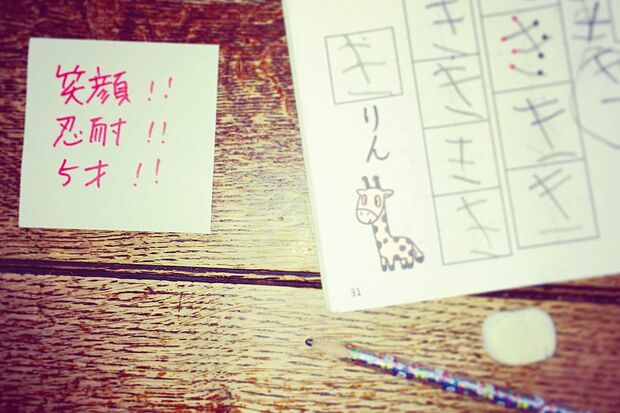 笑顔!!
忍耐!!
5才!!
き
りん
き
き
き
き
き
き
き
31